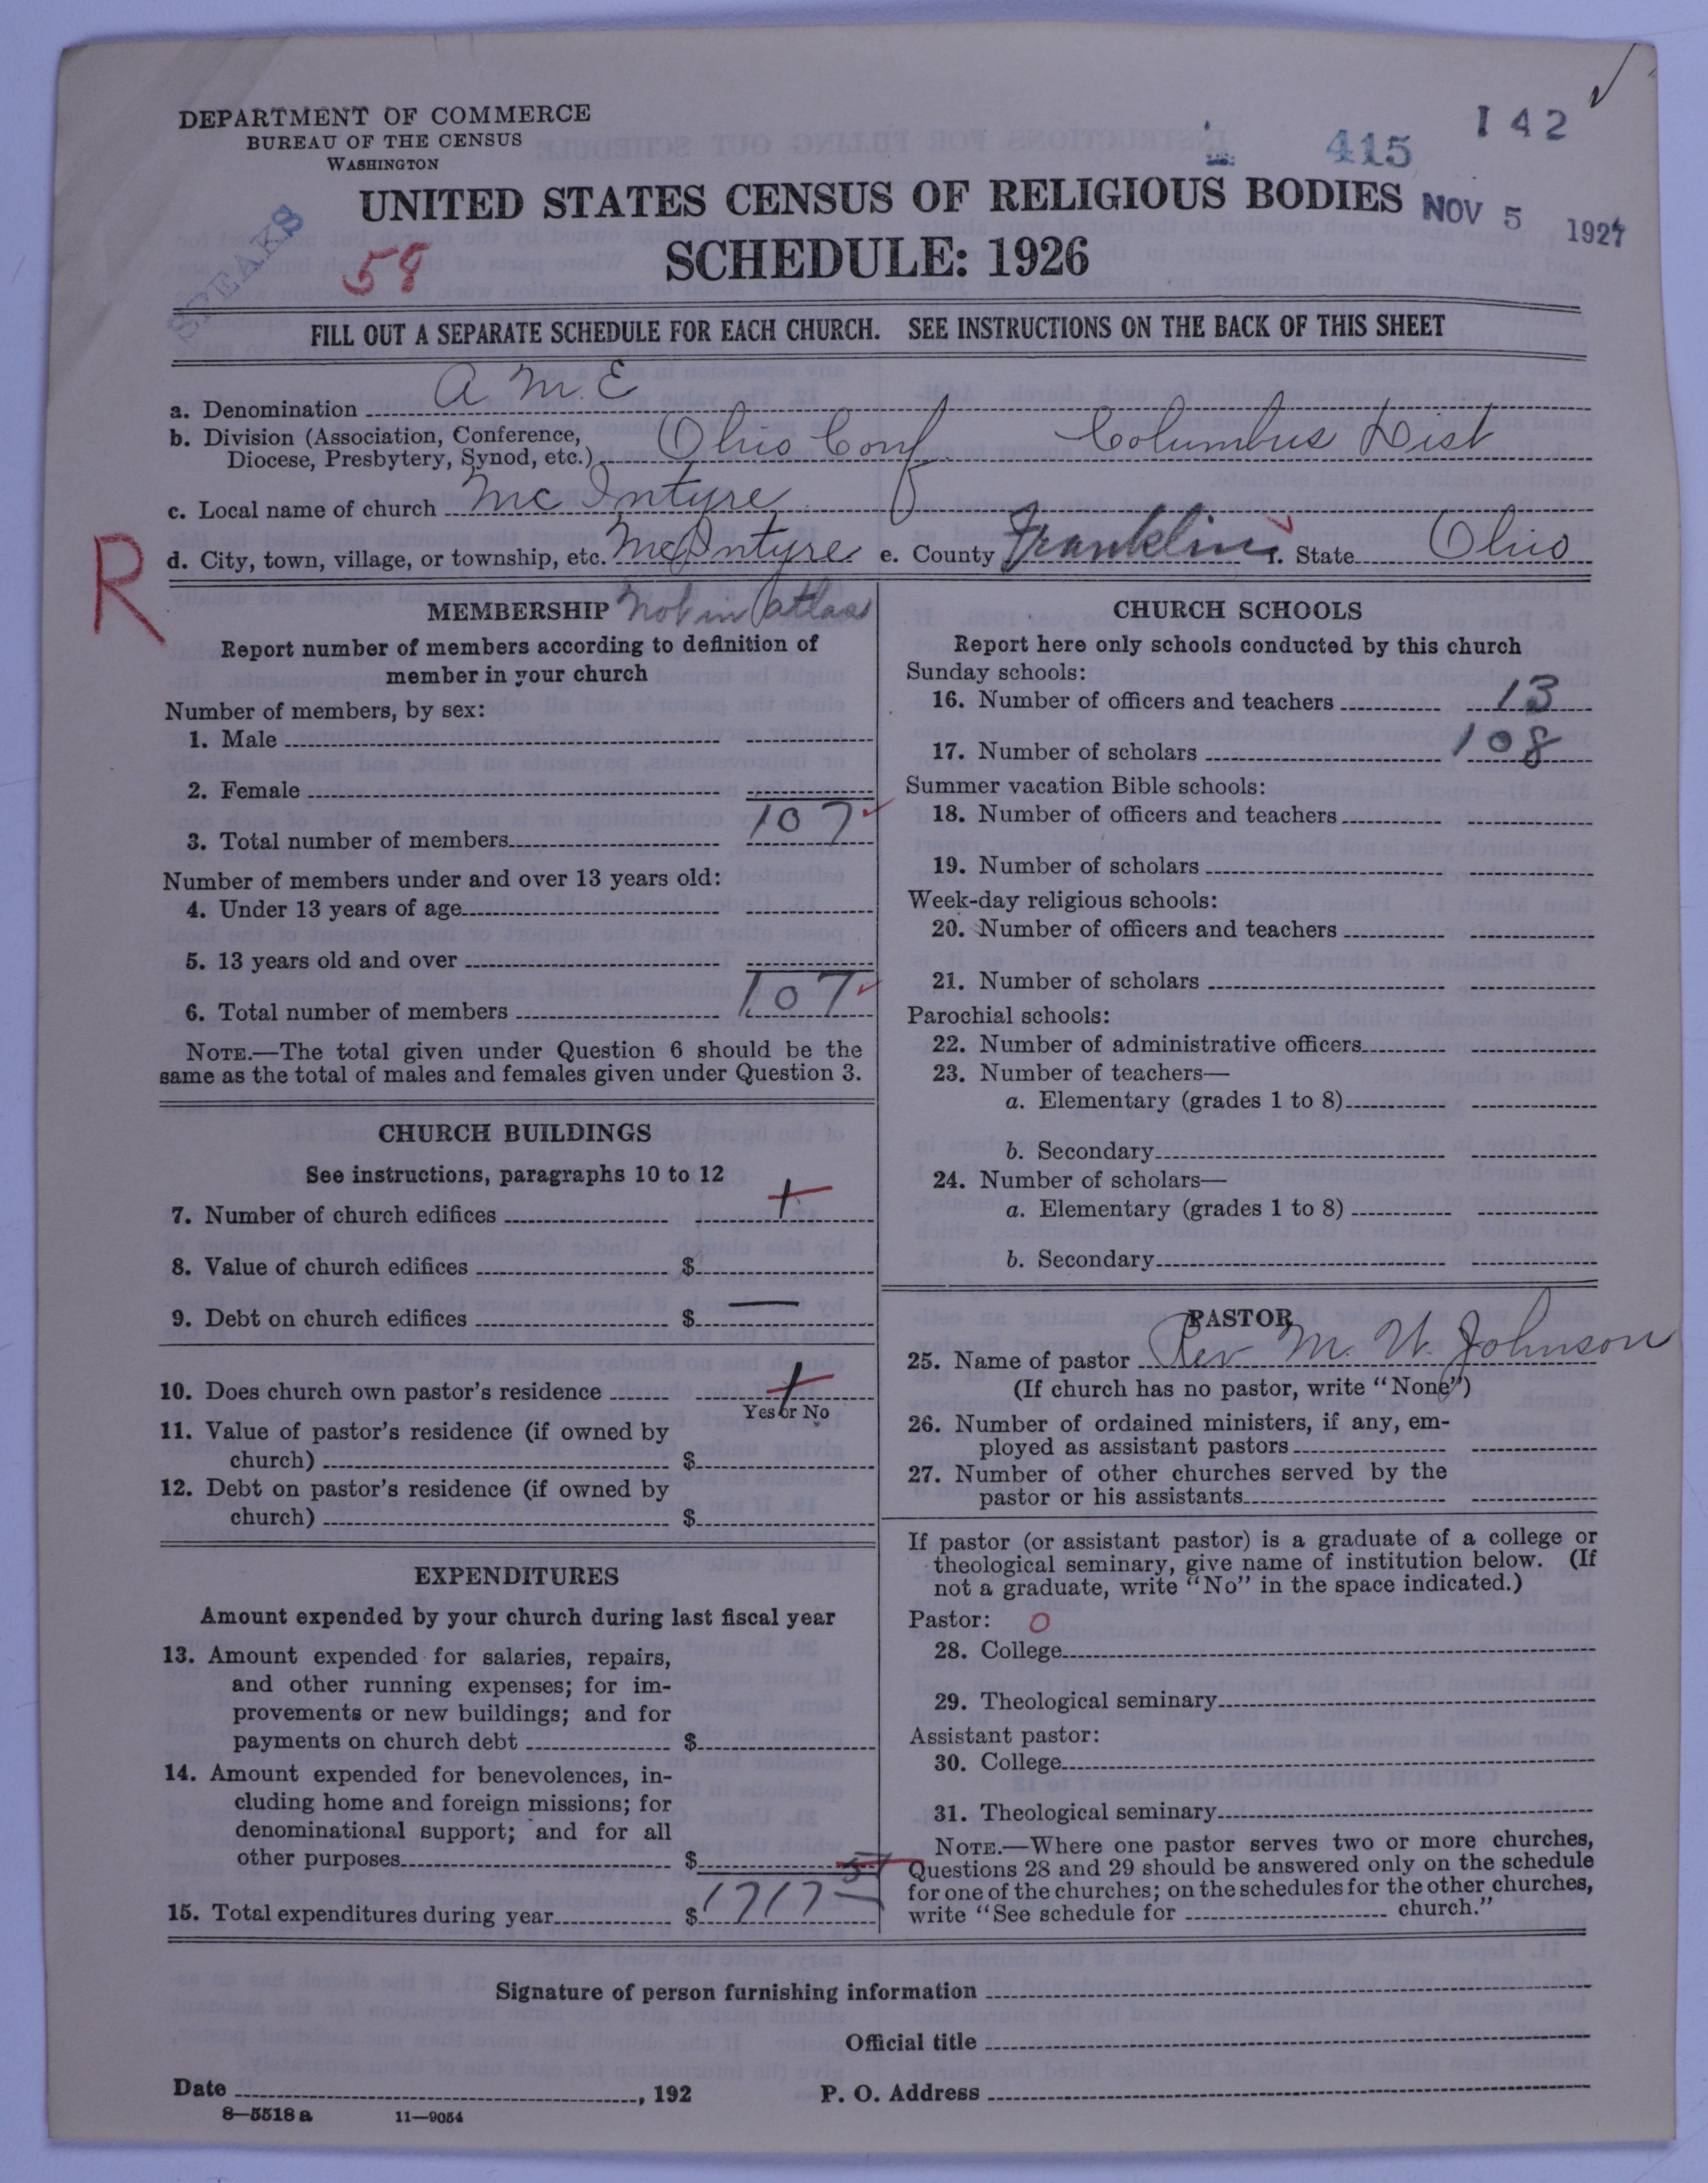 DEPARTMENT OF COMMERCE
BUREAU OF THE CENSUS
WASHINGTON
415
142
UNITED STATES CENSUS OF RELIGIOUS BODIES
NOV 5 1927
SPEAKS
SCHEDULE: 1926
FILL OUT A SEPARATE SCHEDULE FOR EACH CHURCH. SEE INSTRUCTIONS ON THE BACK OF THIS SHEET
a. Denomination A. M. E
b. Division (Association, Conference, Diocese, Presbytery, Synod, etc.) Ohio Conf Columbus Dist
c. Local name of church McIntyre
d. City, town, village, or township, etc. McIntyre e. County Franklin f. State Ohio
R
MEMBERSHIP Not in atlas
Report number of members according to definition of
member in your church
Number of members, by sex:
1. Male
2. Female
3. Total number of members 107
Number of members under and over 13 years old:
4. Under 13 years of age
5. 13 years old and over
6. Total number of members 107
NOTE.—The total given under Question 6 should be the
same as the total of males and females given under Question 3.
CHURCH BUILDINGS
See instructions, paragraphs 10 to 12
7. Number of church edifices 1
8. Value of church edifices $
9. Debt on church edifices $ —
10. Does church own pastor's residence 1
Yes or No
11. Value of pastor's residence (if owned by
church) $
12. Debt on pastor's residence (if owned by
church) $
EXPENDITURES
Amount expended by your church during last fiscal year
13. Amount expended for salaries, repairs,
and other running expenses; for im-
provements or new buildings; and for
payments on church debt $
14. Amount expended for benevolences, in-
cluding home and foreign missions; for
denominational support; and for all
other purposes $
15. Total expenditures during year $ 1717
CHURCH SCHOOLS
Report here only schools conducted by this church
Sunday schools:
16. Number of officers and teachers 13
17. Number of scholars 108
Summer vacation Bible schools:
18. Number of officers and teachers
19. Number of scholars
Week-day religious schools:
20. Number of officers and teachers
21. Number of scholars
Parochial schools:
22. Number of administrative officers
23. Number of teachers—
a. Elementary (grades 1 to 8)
b. Secondary
24. Number of scholars—
a. Elementary (grades 1 to 8)
b. Secondary
PASTOR
25. Name of pastor Rev M. W. Johnson
(If church has no pastor, write "None")
26. Number of ordained ministers, if any, em-
ployed as assistant pastors
27. Number of other churches served by the
pastor or his assistants
If pastor (or assistant pastor) is a graduate of a college or
theological seminary, give name of institution below. (If
not a graduate, write "No" in the space indicated.)
Pastor: 0
28. College
29. Theological seminary
Assistant pastor:
30. College
31. Theological seminary
NOTE.—Where one pastor serves two or more churches,
Questions 28 and 29 should be answered only on the schedule
for one of the churches; on the schedules for the other churches,
write "See schedule for church."
Signature of person furnishing information
Official title
Date , 192 P. O. Address
8—5518 a 11—9054